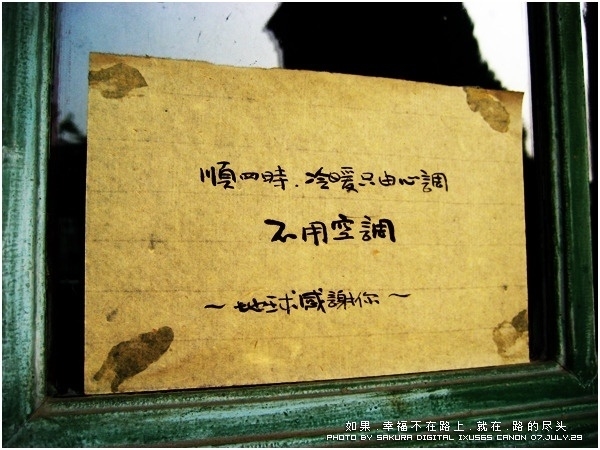 順四時.冷暖只由心調
不用空調
~地球感謝你~
如果.幸福不在路上.就在.路的尽头
PHOTO BY SAKURA DIGITAL IXUS65 CANON 07.JULY.29